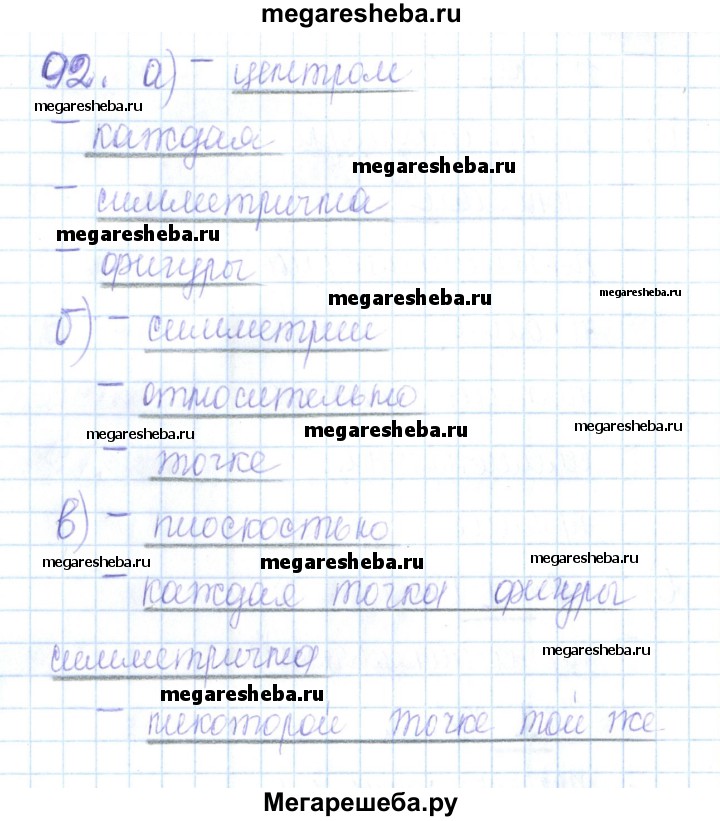 megaresheba.ru
92. а) - центром
megaresheba.ru
- каждая
megaresheba.ru
- симметрична
megaresheba.ru
- фигуры
megaresheba.ru
megaresheba.ru
б) - симметрии
- относительно
megaresheba.ru
megaresheba.ru
megaresheba.ru
- точке
в) - плоскостью
megaresheba.ru
megaresheba.ru
megaresheba.ru
- каждая точка фигуры
симметрична
megaresheba.ru
megaresheba.ru
- некоторой точке той же
Мегарешеба.ру